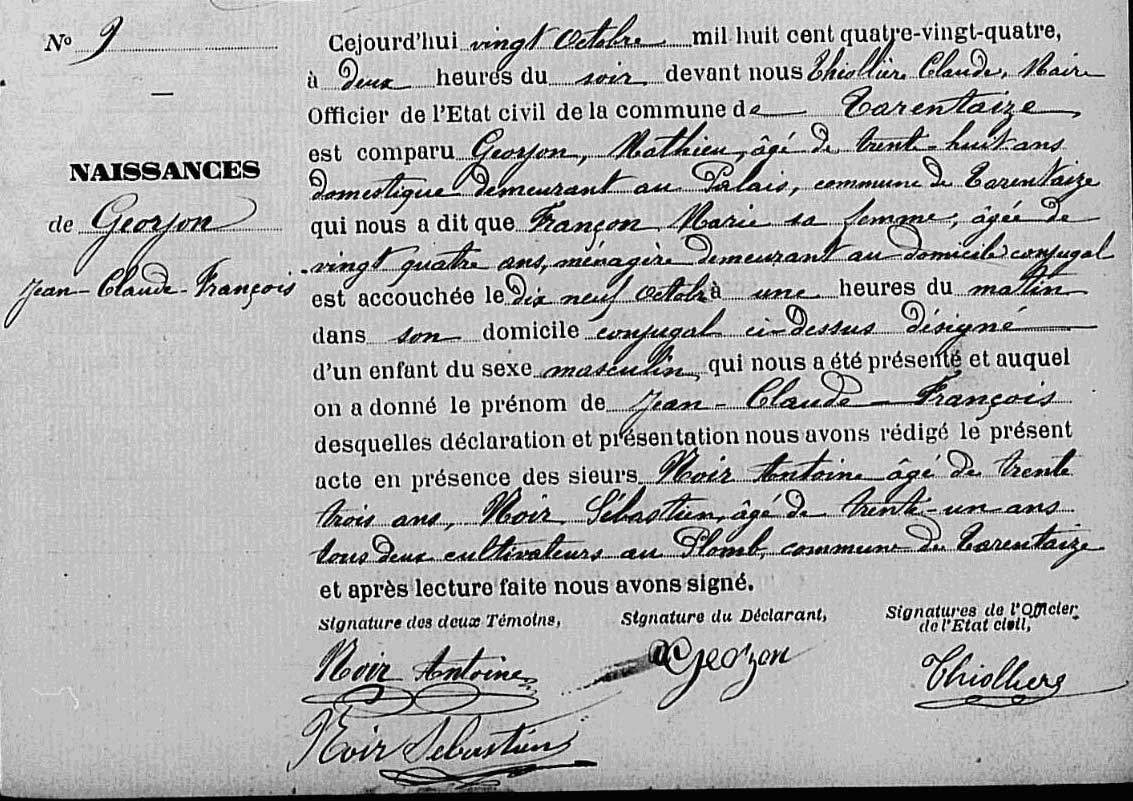 No 9
NAISSANCES
de Georjon
Jean-Claude-François
Cejourd'hui vingt Octobre mil huit cent quatre-vingt-quatre,
à deux heures du soir devant nous Thiollière Claude, Maire
Officier de l'Etat civil de la commune de Tarentaize
est comparu Georjon, Mathieu, âgé de trente-huit ans
domestique demeurant au Palais, commune de Tarentaize
qui nous a dit que Françon Marie sa femme, âgée de
vingt quatre ans, ménagère demeurant au domicile conjugal
est accouchée le dix neuf octobre à une heures du matin
dans son domicile conjugal ci-dessus désigné
d'un enfant du sexe masculin, qui nous a été présenté et auquel
on a donné le prénom de Jean-Claude-François
desquelles déclaration et présentation nous avons rédigé le présent
acte en présence des sieurs Noir Antoine âgé de trente
trois ans, Noir Sébastien, âgé de trente-un ans
tous deux cultivateurs au Plomb, commune de Tarentaize
et après lecture faite nous avons signé.
Signature des deux Témoins, Signature du Déclarant, Signatures de l'Officier
de l'Etat civil,
Noir Antoine Georzon Thiolliere
Noir Sébastien